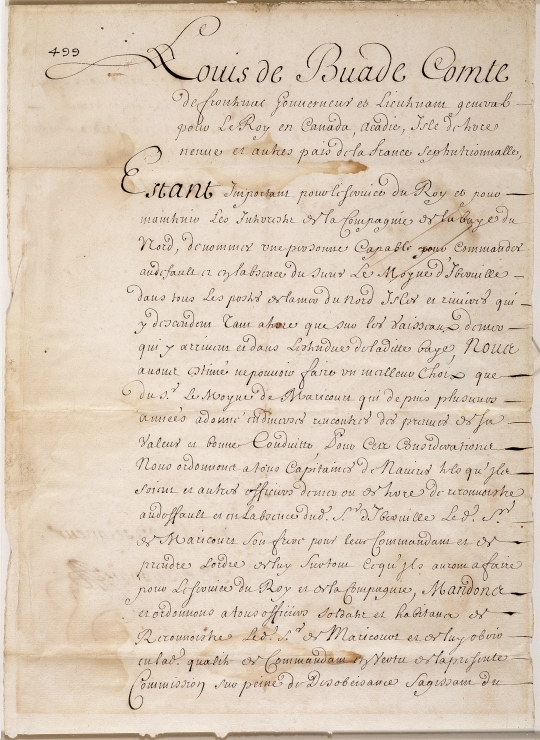 499
Louis de Buade Comte
de frontenac Gouverneur et Lieutenant general
pour Le Roy en Canada, acadie, Isle de terre
neuve et autres pais de la france septentrionnalle,
Estant Important pour le service du Roy et pour
maintenir Les Interests de la Compagnie de la baye du
Nord, de nommer une personne Capable pour Commander
au deffault et en l'absence du sieur Le Moyne d'Iberville
dans tous Les postes de la mer du Nord Isles et rivieres qui
y descendent Tant a terre que sur les vaisseaux de mer
qui y arrivent et dans L'estendue de laditte baye, Nous
avons estimé ne pouvoir faire un meilleur Choix que
du Sr. Le Moyne de Maricourt qui depuis plusieurs
années a donné en diverses rencontres des preuves de sa
Valeur et bonne Conduitte, Pour Ces Considerations
Nous ordonnons a tous Capitaines de Navires tels qu'ils
soient et autres officiers de mer ou de terre de reconnoistre
au deffault et en L'absence dud. Sr. d'Iberville Led. Sr.
de Maricourt son frere pour leur Commandant et de
prendre l'ordre de luy sur tout ce qu'ils auront a faire
pour Le service du Roy et de la Compagnie, Mandons
et ordonnons a tous officiers soldats et habitans de
Reconnoistre Led. Sr. de Maricourt et de luy obeir
en lad. qualité de Commandant en vertu de la presente
Commission sur peine de Desobeissance s'agissant du